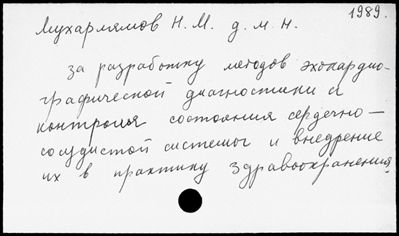 1989.
Мухарлямов Н. М. д. м. н.
за разработку методов эхокардио-
графической диагностики и
контроля состояния сердечно-
сосудистой системы и внедрение
их в практику здравоохранения.